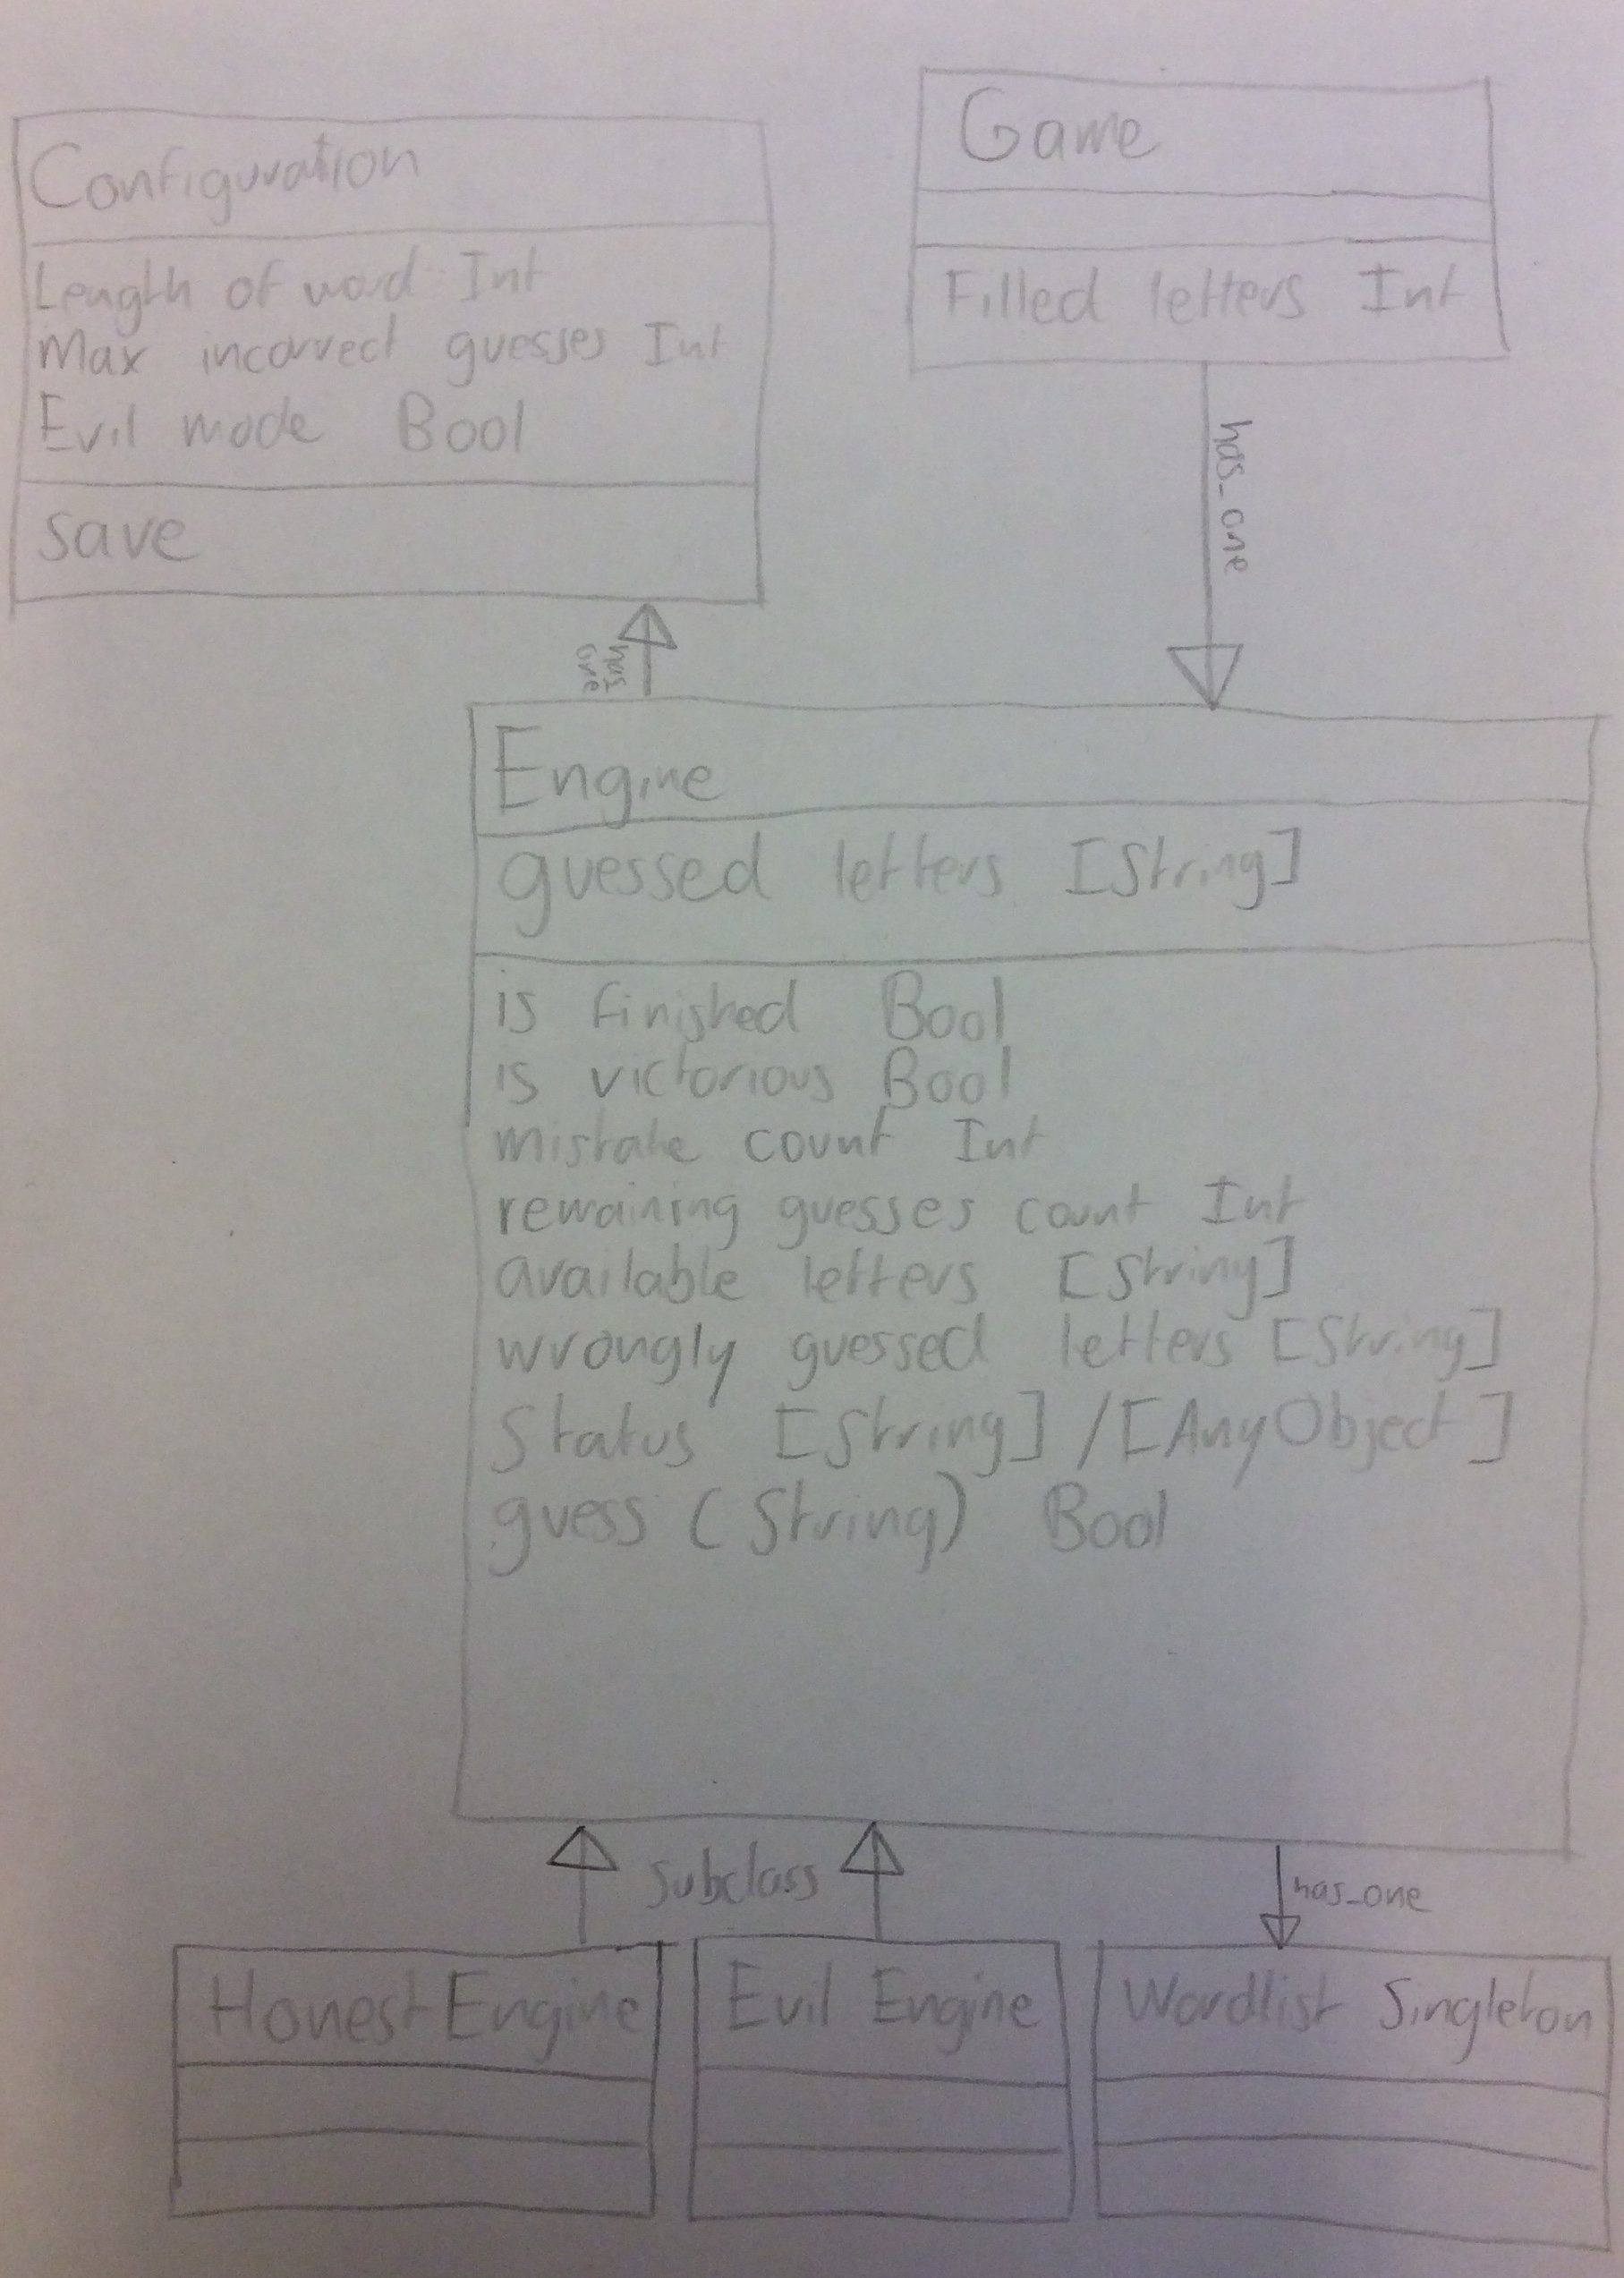 Configuration
Length of word Int
Max incorrect guesses Int
Evil mode Bool
save
Game
Filled letters Int
has_one
has
one
Engine
guessed letters [String]
is finished Bool
is victorious Bool
mistake count Int
remaining guesses count Int
available letters [String]
wrongly guessed letters [String]
Status [String] / [AnyObject]
guess (String) Bool
Subclass
has_one
Honest Engine
Evil Engine
Wordlist Singleton